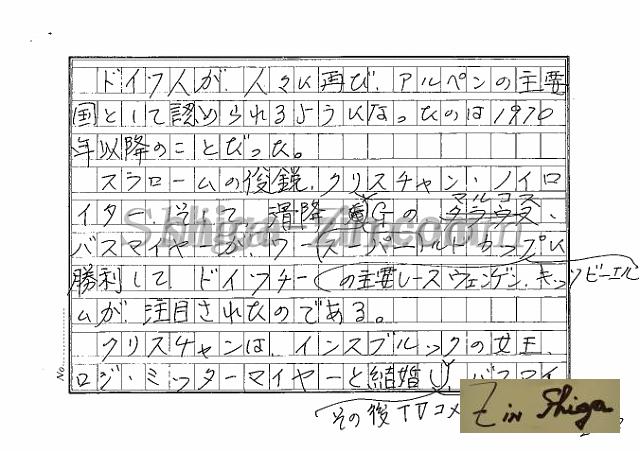 ドイツ人が、人々に再び、アルペンの主要
国として認められるようになったのは1970
年以降のことだった。
スラロームの俊鋭、クリスチャン・ノイロ
イター そして 滑降 Gの マルコス、
バスマイヤーが、ワールドカップに
勝利して、ドイツチー(の主要レースウェンゲン、キッツビーエル
ムが、注目されたのである。
クリスチャンは、インスブルックの女王、
ロジ・ミッターマイヤーと結婚し、バスマイ
その後TVコメ
Shiga Zin.com
Z in Shiga
No.